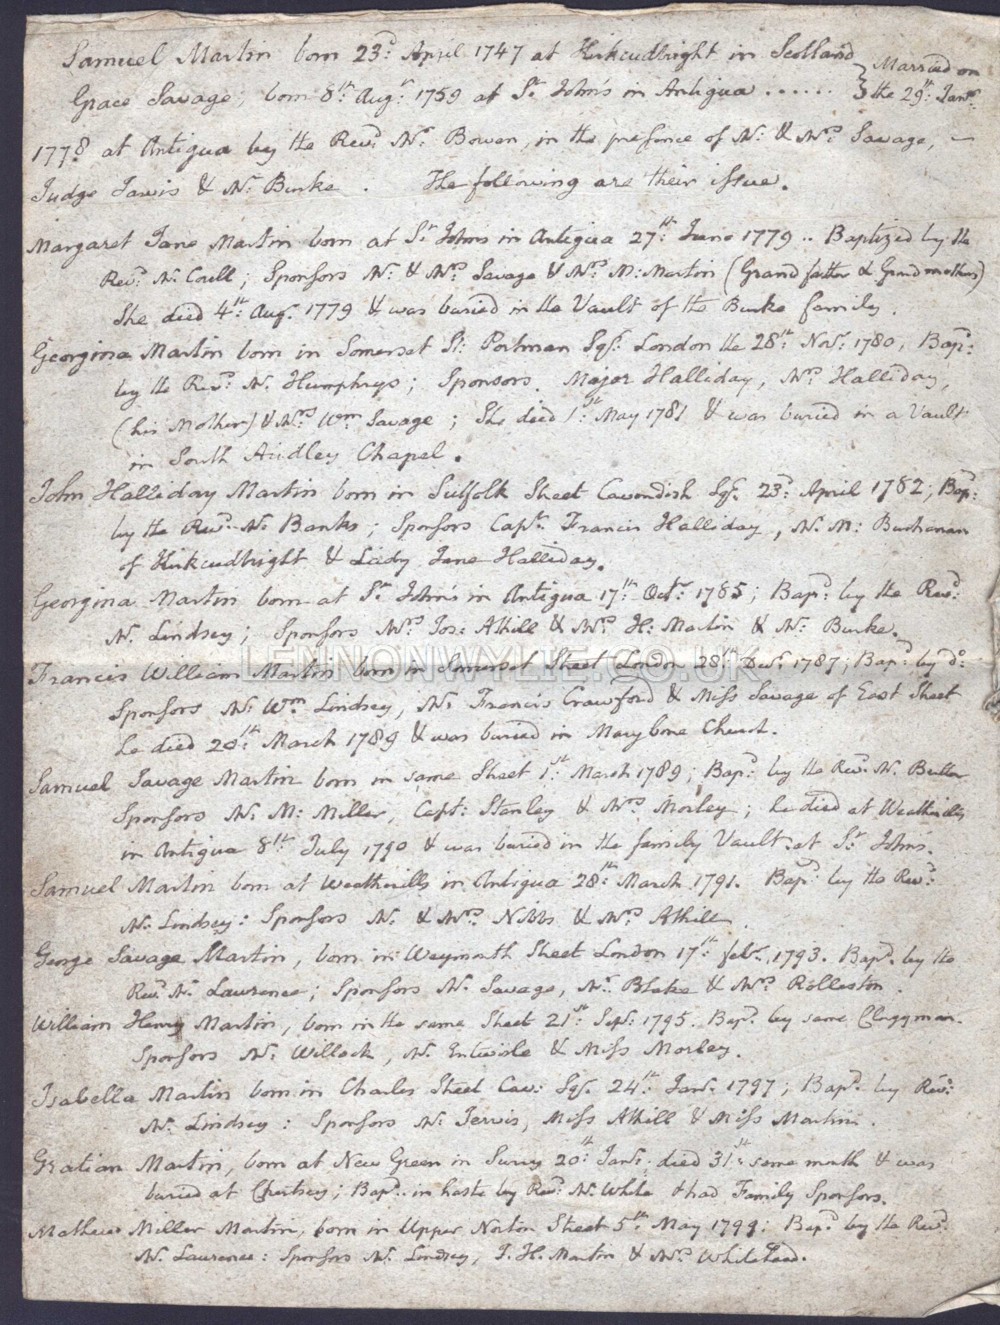 Samuel Martin born 23d. April 1747 at Kirkcudbright in Scotland } Married on
Grace Savage, born 8th. Augt. 1759 at St. John's in Antigua ...... } the 29th. Jany.
1778 at Antigua by the Revd. Mr. Bowen, in the presence of Mr. & Mrs. Savage, —
Judge Jarvis & Mr. Burke . The following are their issue.
Margaret Jane Martin born at St. Johns in Antigua 27th. June 1779 .. Baptized by the
Revd. Mr. Coull; Sponsors Mr. & Mrs. Savage & Mrs. M: Martin (Grandfather & Grandmothers)
She died 4th. Augt. 1779 & was buried in the Vault of the Burke family.
Georgina Martin born in Somerset St. Portman Sqr. London the 28th. Novr. 1780, Bapd:
by the Revd. Mr. Humphrys; Sponsors, Major Halliday, Mrs. Halliday,
(his Mother) & Mrs. Wm. Savage; She died 1st. May 1781 & was buried in a Vault
in South Audley Chapel.
John Halliday Martin born in Suffolk Street Cavendish Sqr. 23d. April 1782; Bapd:
by the Revd. Mr. Banks; Sponsors Capt. Francis Halliday, Mr. M: Buchanan
of Kirkcudbright & Lady Jane Halliday.
Georgina Martin born at St. John's in Antigua 17th. Octr. 1785; Bapd. by the Revd.
Mr. Lindsey; Sponsors Mrs. Jos: Athill & Mrs. H: Martin & Mr. Burke.
Francis William Martin born in Somerset Street London 28th. Decr. 1787; Bapd. by do.
LENNONWYLIE.CO.UK
Sponsors Mr. Wm. Lindsey, Mr. Francis Crawford & Miss Savage of East Street
he died 20th. March 1789 & was buried in Marybone Church.
Samuel Savage Martin born in same Street 1st. March 1789; Bapd. by the Revd. Mr. Butler
Sponsors Mr. M: Miller, Capt. Stanley & Mrs. Morley; he died at Weatherills
in Antigua 8th. July 1790 & was buried in the family Vault at St. Johns.
Samuel Martin born at Weatherills in Antigua 28th. March 1791. Bapd. by the Revd.
Mr. Lindsey: Sponsors Mr. & Mrs. Nibbs & Mrs. Athill
George Savage Martin, born in Weymouth Street London 17th. Feby. 1793. Bapd. by the
Revd. Mr. Lawrence; Sponsors Mr. Savage, Mr. Blake & Mrs. Rolleston.
William Henry Martin, born in the same Street 21st. Sepr. 1795. Bapd. by same Clergyman.
Sponsors Mr. Willock, Mr. Entwisle & Miss Morley.
Isabella Martin born in Charles Street Cav: Sqr. 24th. Jany. 1797; Bapd. by Revd.
Mr. Lindsey: Sponsors Mr. Jervis, Miss Athill & Miss Martin.
Gratian Martin, born at New Green in Surry 20th. Jany. died 31st. same month & was
buried at Chertsey; Bapd. in haste by Revd. Mr. White & had Family Sponsors.
Mathew Miller Martin, born in Upper Norton Street 5th. May 1799: Bapd. by the Revd.
Mr. Lawrence: Sponsors Mr. Lindsey, J. H. Martin & Mrs. Whitehead.